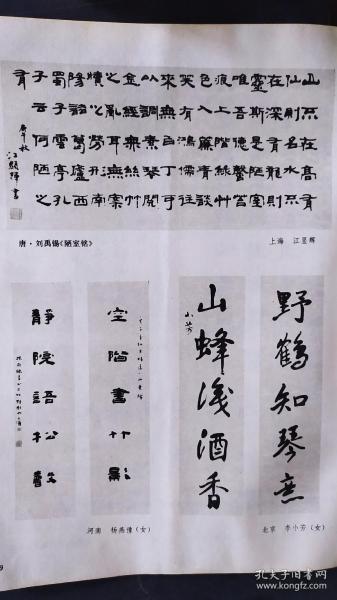 山不在高有
仙則名水不
在深有龍則
靈斯是陋室
唯吾德馨苔
痕上階綠草
色入簾青談
笑有鴻儒往
來無白丁可
以調素琴閱
金經無絲竹
之亂耳無案
牘之勞形南
陽諸葛廬西
蜀子雲亭孔
子云何陋之
有
庚午秋
書
唐·刘禹锡《陋室铭》
上海 江显辉
野鶴知琴意
山蜂識酒香
小芳
空階書竹影
靜院語松聲
河南 杨燕慵（女）
北京 李小芳（女）
9
孔夫子旧书网